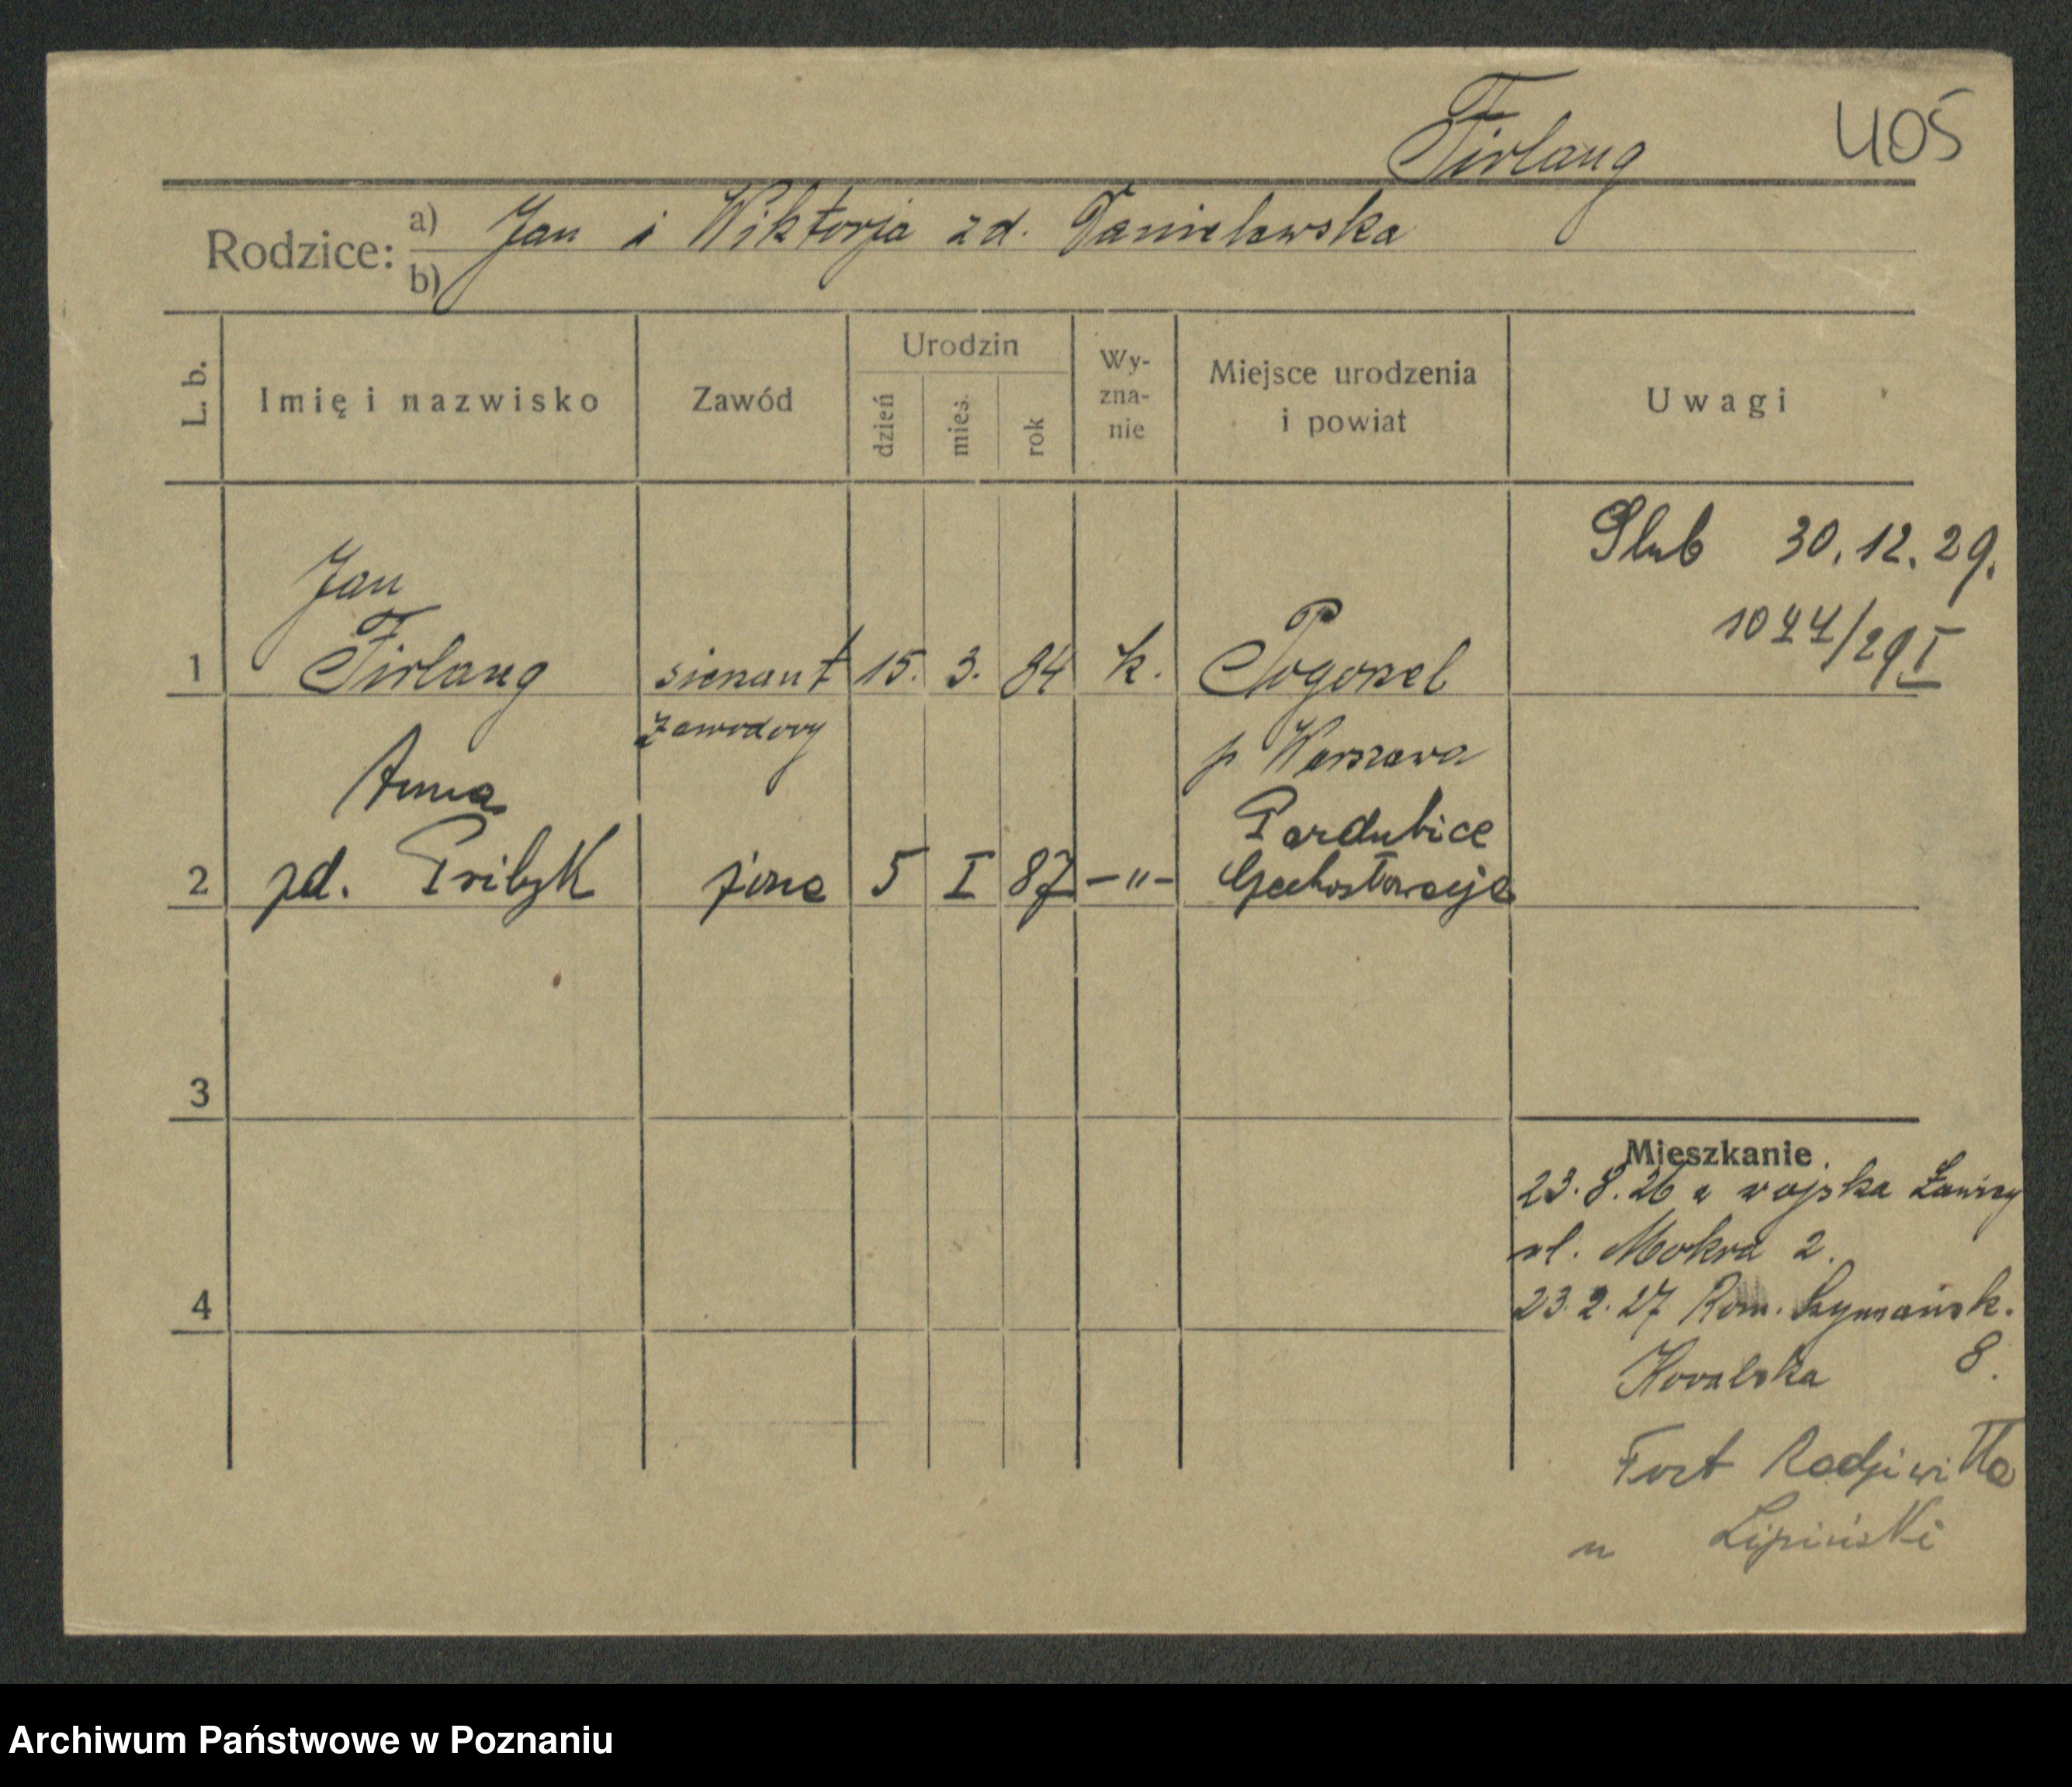 Firlang 405
Rodzice: a) Jan i Wiktorja zd. Danielewska
b)
L. b. Imię i nazwisko Zawód Urodzin dzień mieś. rok Wy-zna-nie Miejsce urodzenia i powiat Uwagi
Ślub 30.12.29.
1044/29 I
Jan
1 Firlang 15. 3. 84 k.
zawodowy p Warszawa
Anna Pardubice
2 zd. Pribyk żona 5 I 87 -"- Czechosłowacja
3
Mieszkanie
23.8.26 z wojska
ul. Mokra 2.
4 23.2.27 Rom. Szymańsk.
8.
Fort Radziwiłła
u Lipiński
Archiwum Państwowe w Poznaniu